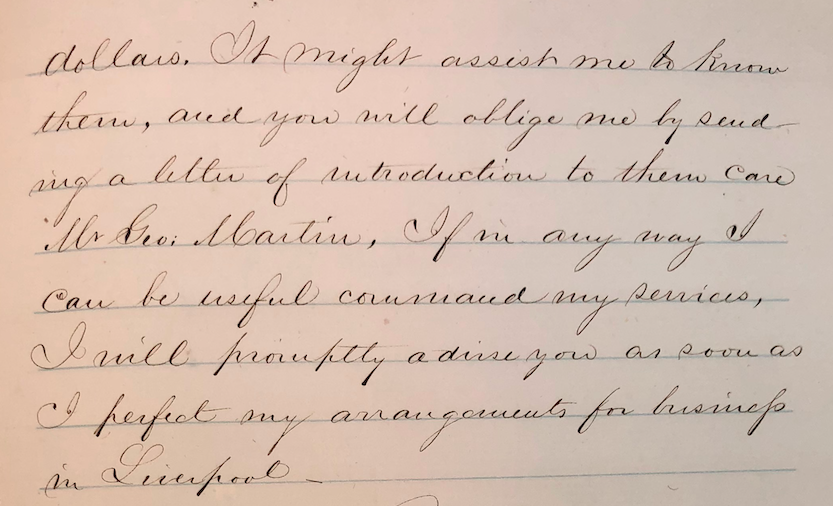 dollars. It might assist me to know
them, and you will oblige me by send-
ing a letter of introduction to them care
Mr Geo: Martin, If in any way I
can be useful command my services,
I will promptly advise you as soon as
I perfect my arrangements for business
in Liverpool –